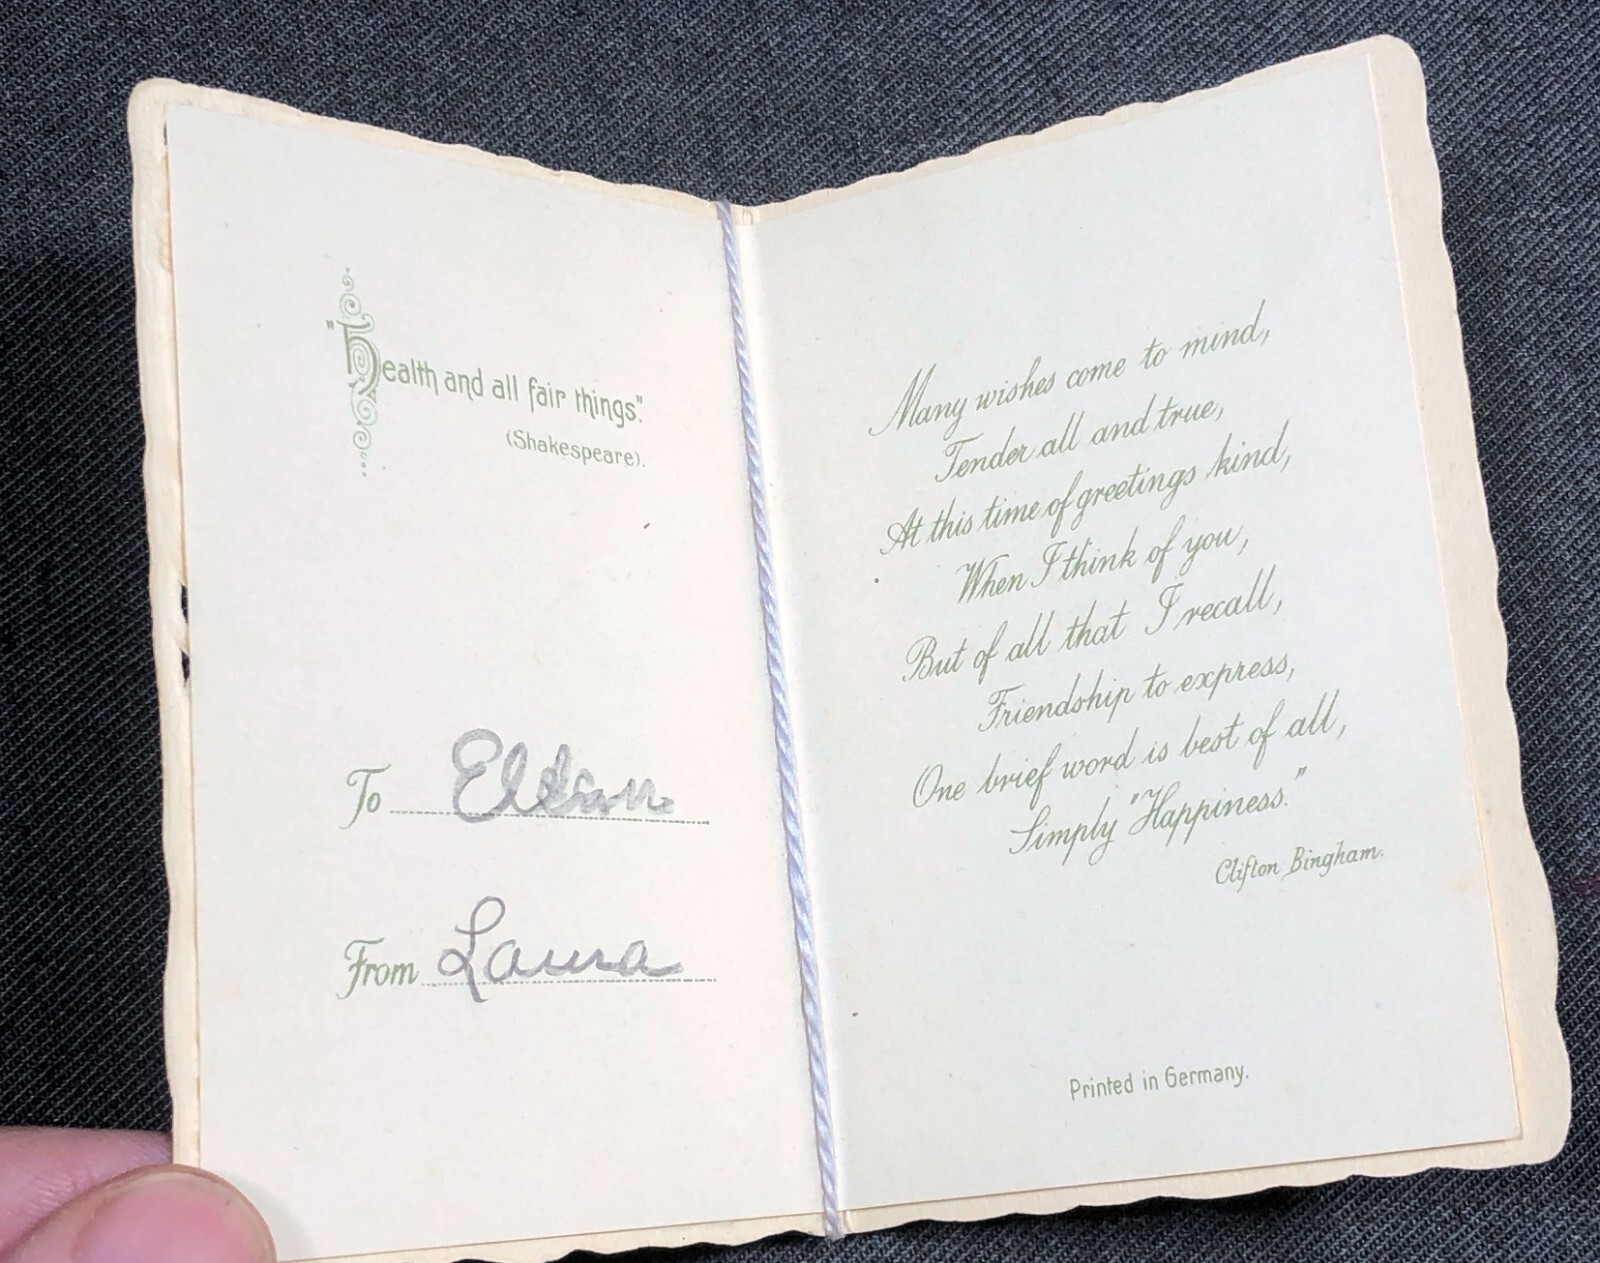 "Health and all fair things".
(Shakespeare).
To
From Laura
Many wishes come to mind,
Tender all and true,
At this time of greetings kind,
When I think of you,
But of all that I recall,
Friendship to express,
One brief word is best of all,
Simply "Happiness."
Clifton Bingham.
Printed in Germany.